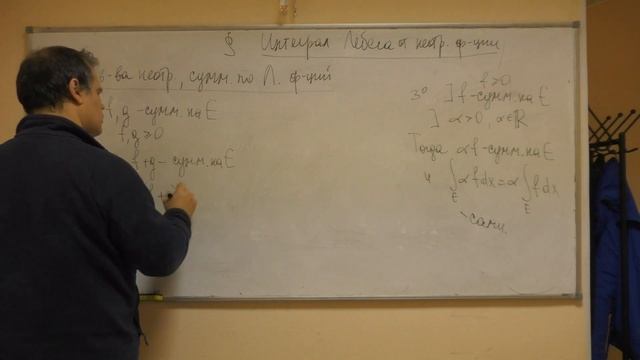 § Интеграл Лебега от неотр. ф-ции
в-ва неотр, сумм. по Л. ф-ций
f, g - сумм. на E
f, g ≥ 0
f+g - сумм. на E
+
3° ] f - сумм. на E
f ≥ 0
] α > 0, α ∈ ℝ
Тогда αf - сумм. на E
и ∫_E αf dx = α ∫_E f dx
- сами.